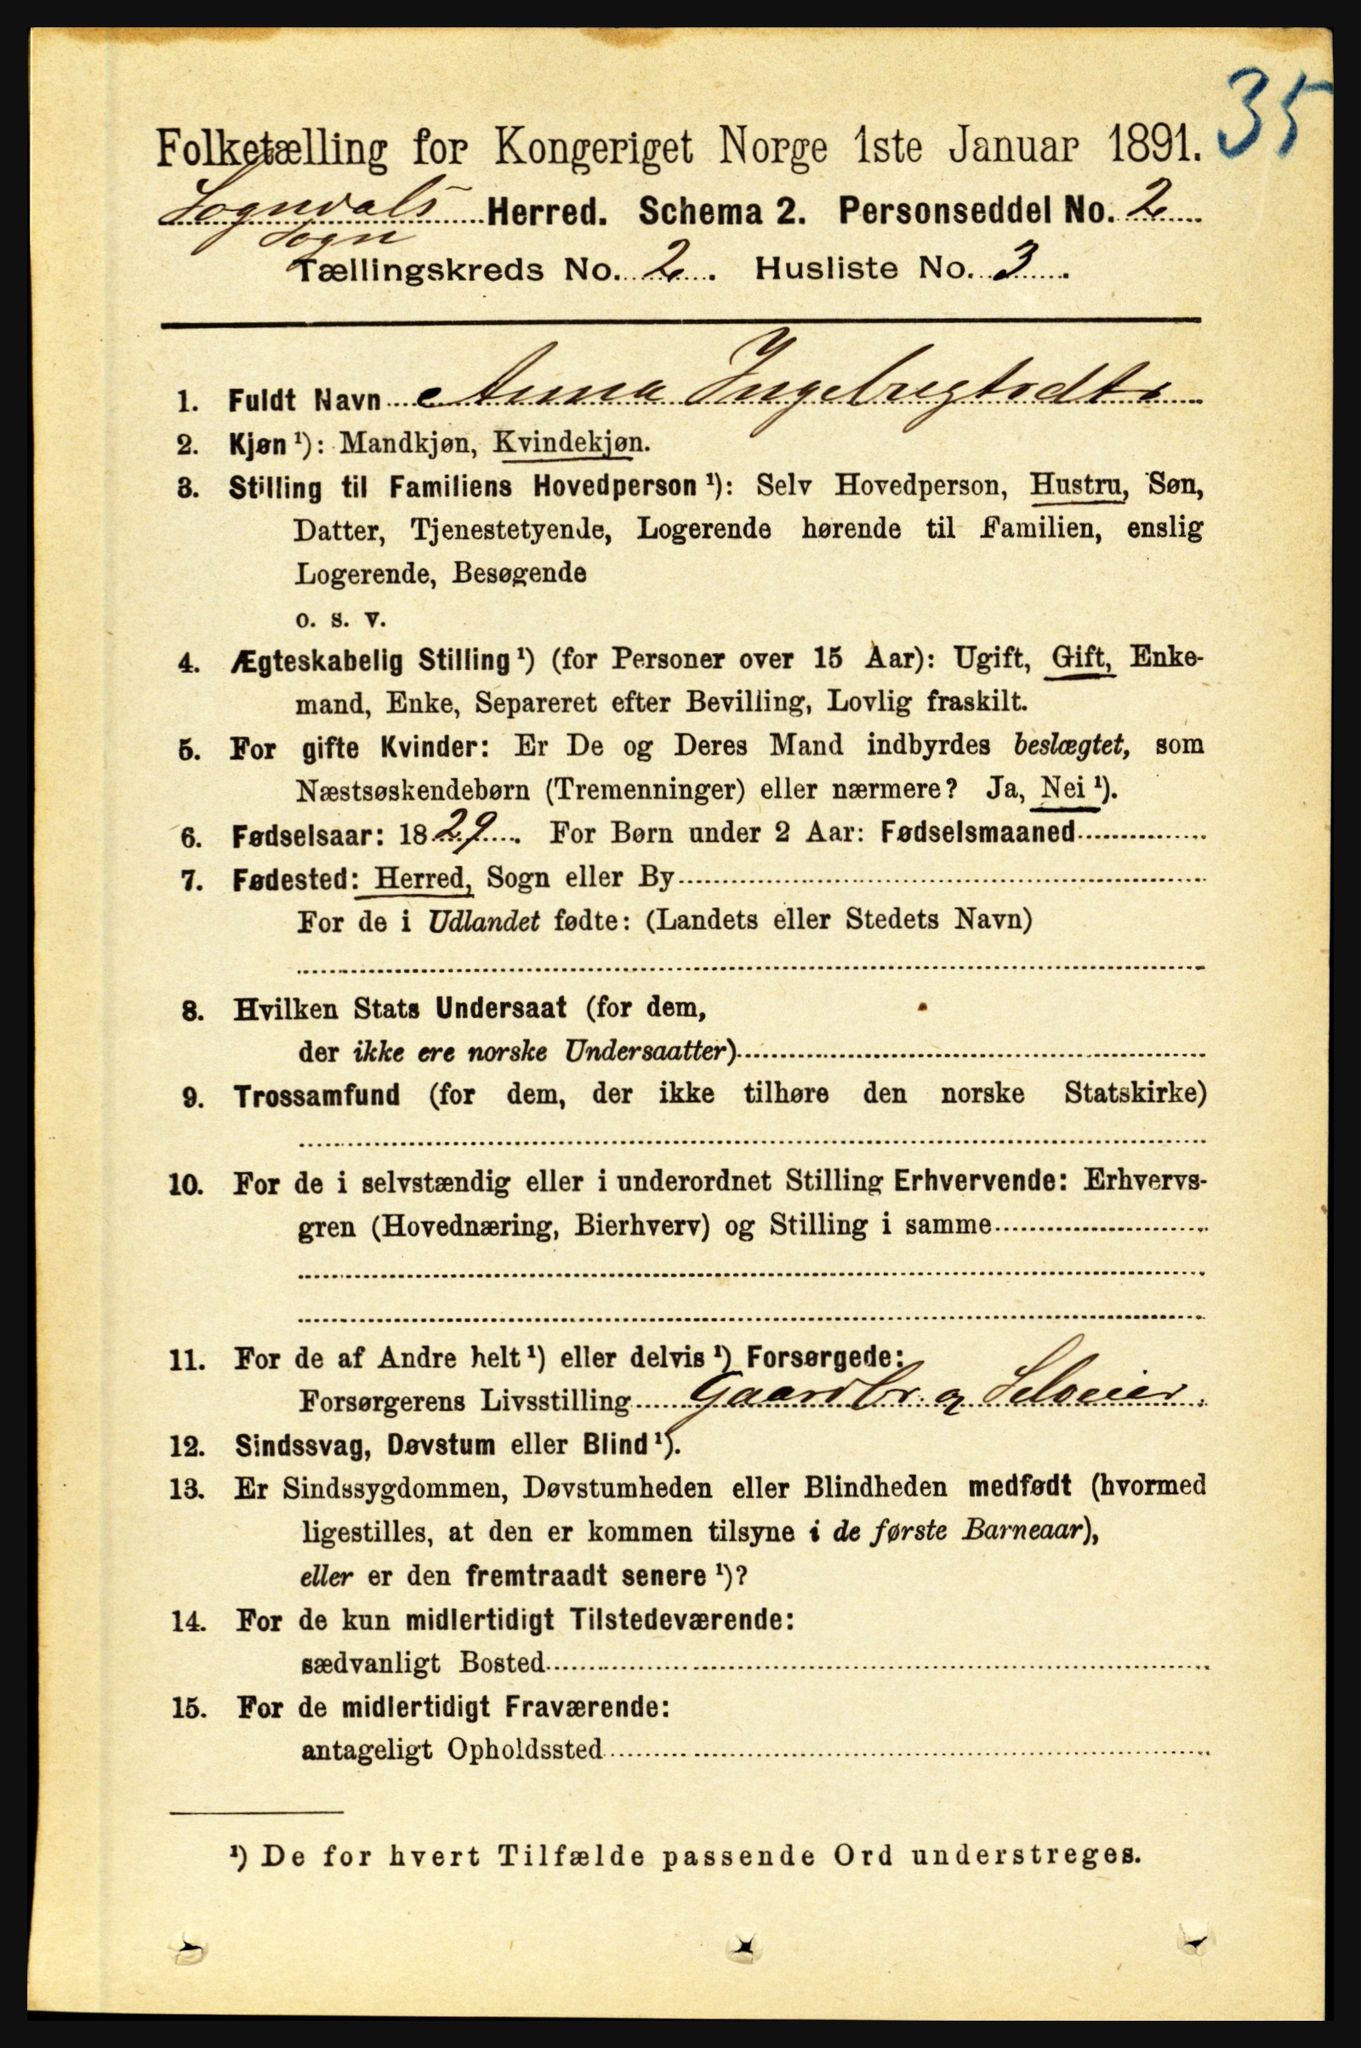 35
Folketælling for Kongeriget Norge 1ste Januar 1891.
Sogndals Herred. Schema 2. Personseddel No. 2
Sogn
Tællingskreds No. 2. Husliste No. 3.
1. Fuldt Navn Anna Ingebrigtsdtr
2. Kjøn ¹): Mandkjøn, Kvindekjøn.
3. Stilling til Familiens Hovedperson ¹): Selv Hovedperson, Hustru, Søn,
Datter, Tjenestetyende, Logerende hørende til Familien, enslig
Logerende, Besøgende
o. s. v.
4. Ægteskabelig Stilling ¹) (for Personer over 15 Aar): Ugift, Gift, Enke-
mand, Enke, Separeret efter Bevilling, Lovlig fraskilt.
5. For gifte Kvinder: Er De og Deres Mand indbyrdes beslægtet, som
Næstsøskendebørn (Tremenninger) eller nærmere? Ja, Nei ¹).
6. Fødselsaar: 1829. For Børn under 2 Aar: Fødselsmaaned
7. Fødested: Herred, Sogn eller By
For de i Udlandet fødte: (Landets eller Stedets Navn)
8. Hvilken Stats Undersaat (for dem,
der ikke ere norske Undersaatter)
9. Trossamfund (for dem, der ikke tilhøre den norske Statskirke)
10. For de i selvstændig eller i underordnet Stilling Erhvervende: Erhvervs-
gren (Hovednæring, Bierhverv) og Stilling i samme
11. For de af Andre helt ¹) eller delvis ¹) Forsørgede:
Forsørgerens Livsstilling Gaardbr. og Selveier.
12. Sindssvag, Døvstum eller Blind ¹).
13. Er Sindssygdommen, Døvstumheden eller Blindheden medfødt (hvormed
ligestilles, at den er kommen tilsyne i de første Barneaar),
eller er den fremtraadt senere ¹)?
14. For de kun midlertidigt Tilstedeværende:
sædvanligt Bosted
15. For de midlertidigt Fraværende:
antageligt Opholdssted
¹) De for hvert Tilfælde passende Ord understreges.